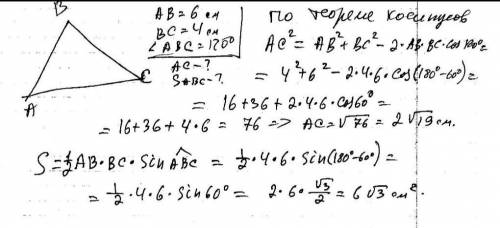 B
AB = 6 см
BC = 4 см
∠ABC = 120°
AC - ?
S ABC - ?
A
C
по теореме косинусов
AC² = AB² + BC² - 2·AB·BC·cos120°=
= 4² + 6² - 2·4·6·cos(180°-60°)=
= 16+36+2·4·6·cos60°=
= 16+36+4·6 = 76 => AC=√76 = 2√19 см.
S = ½ AB·BC·Sin ABC = ½·4·6·Sin(180°-60°)=
= ½·4·6·Sin60° = 2·6·√3/2 = 6√3 см².